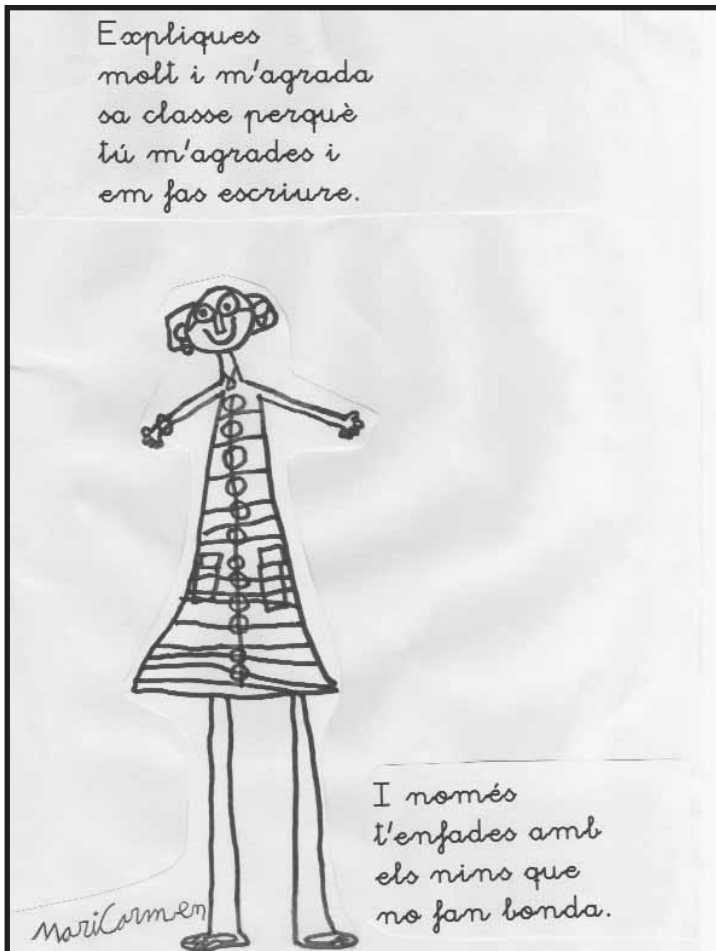 Expliques
molt i m'agrada
sa classe perquè
tú m'agrades i
em fas escriure.
I només
t'enfades amb
els nins que
no fan bonda.
MariCarmen